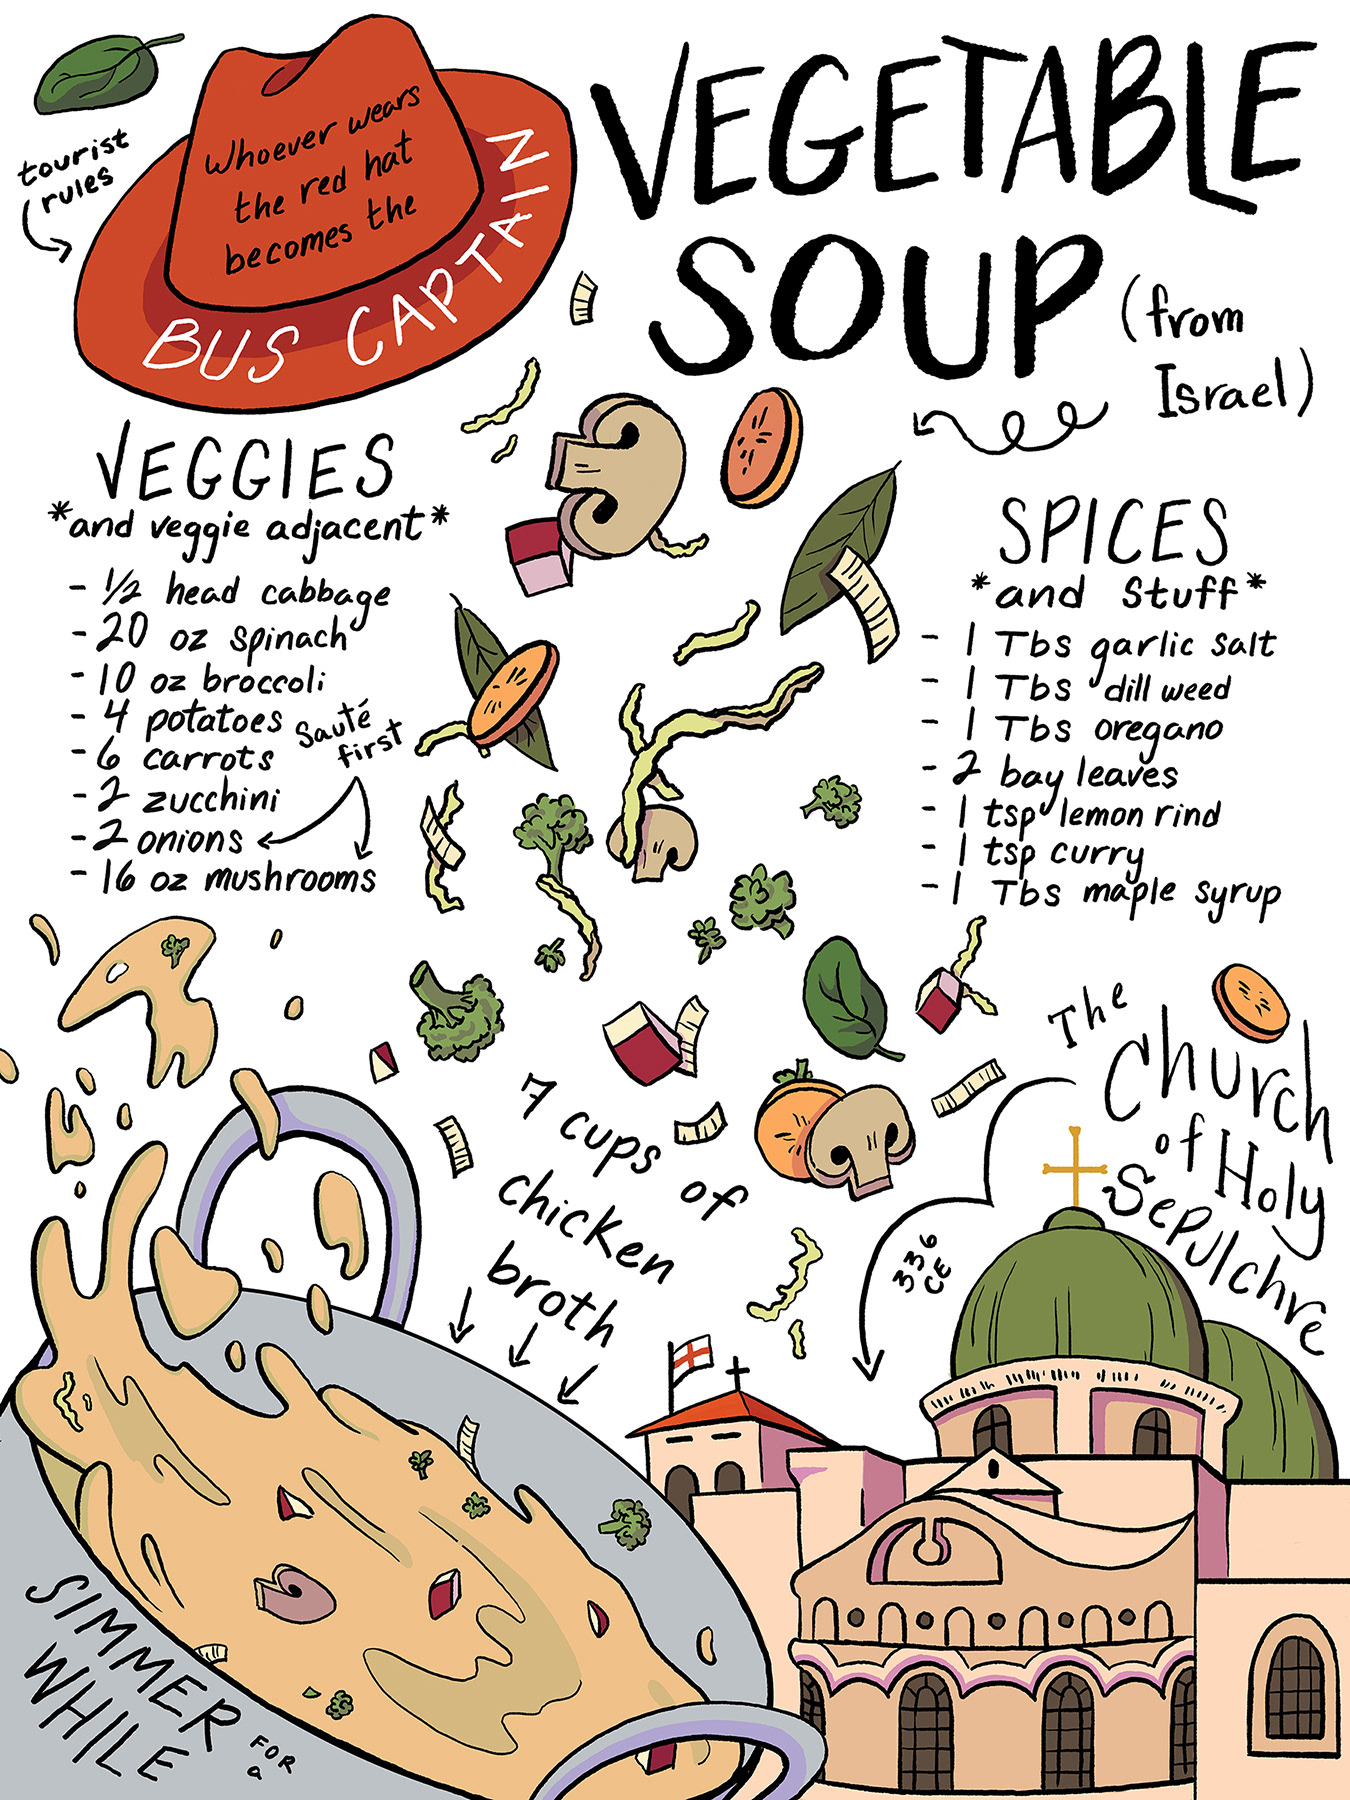 VEGETABLE
SOUP
(from
Israel)
tourist
rules
Whoever wears
the red hat
becomes the
BUS CAPTAIN
VEGGIES
*and veggie adjacent*
- 1/2 head cabbage
- 20 oz spinach
- 10 oz broccoli
- 4 potatoes
- 6 carrots
- 2 zucchini
- 2 onions
- 16 oz mushrooms
Sauté
first
SPICES
*and stuff*
- 1 Tbs garlic salt
- 1 Tbs dill weed
- 1 Tbs oregano
- 2 bay leaves
- 1 tsp lemon rind
- 1 tsp curry
- 1 Tbs maple syrup
7 cups of
chicken
broth
The
Church
of Holy
Sepulchre
336
CE
SIMMER FOR a
WHILE